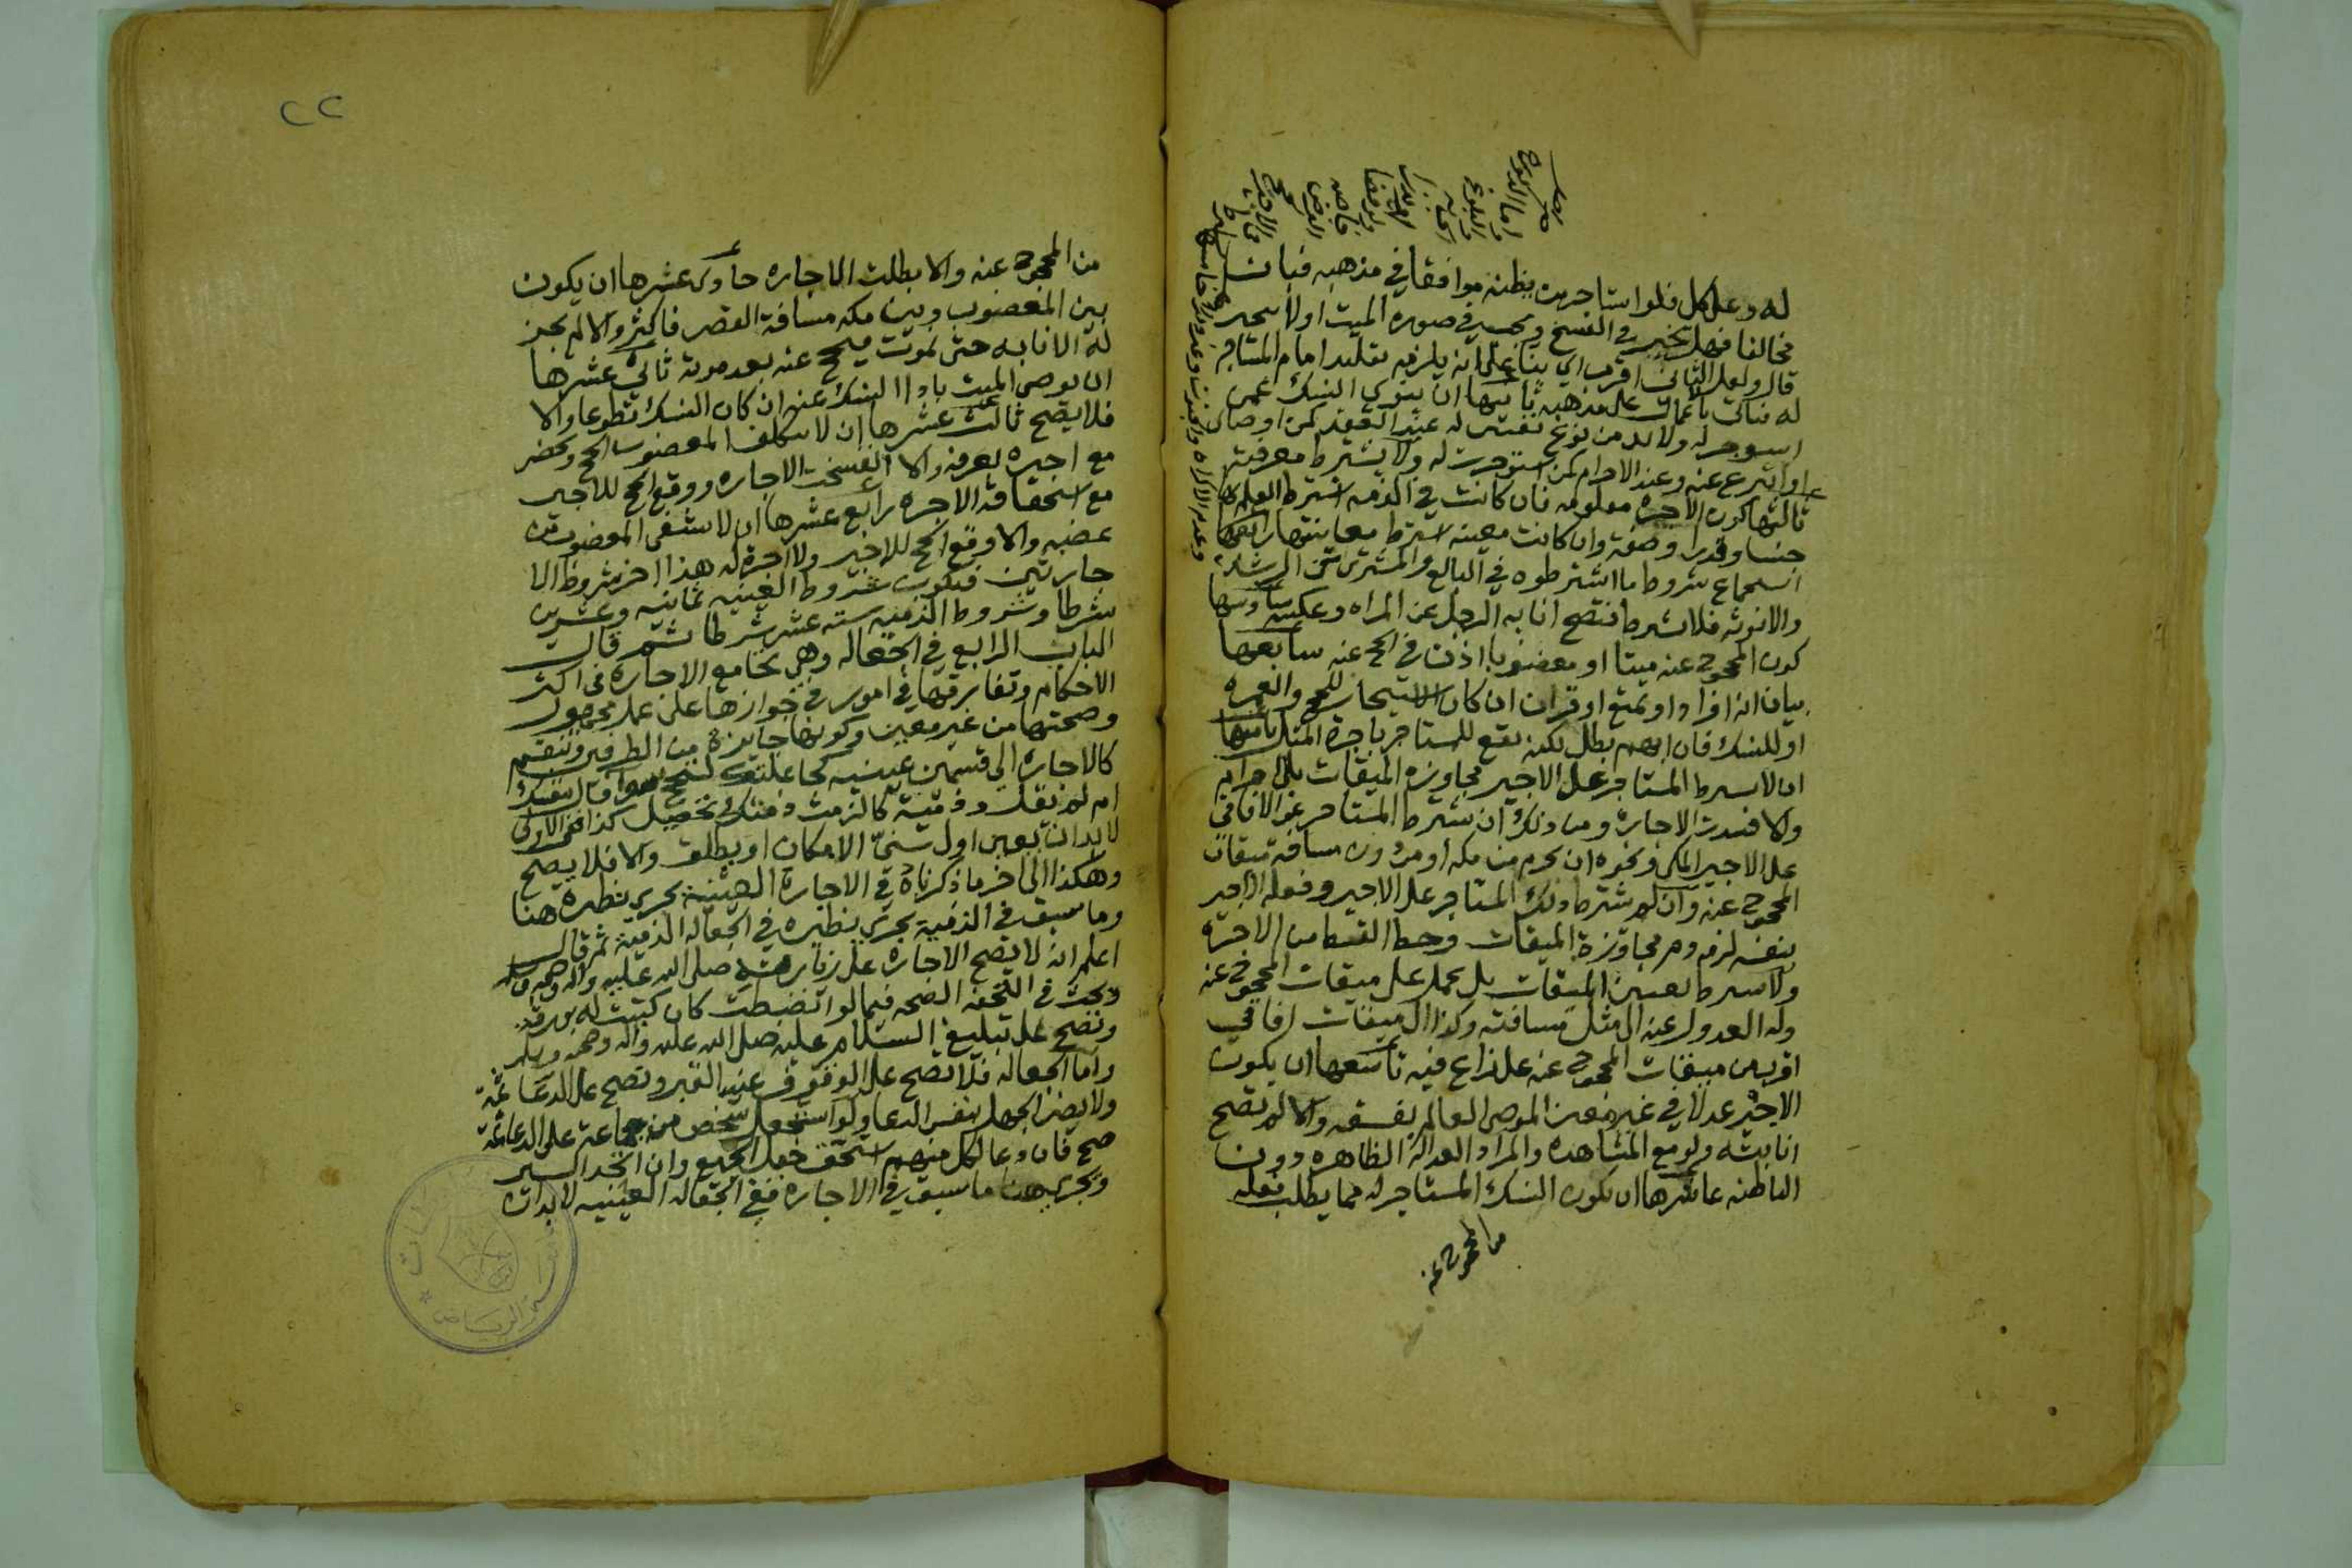 له وعلى كل فلو استاجر من يظنه موافقا في مذهبه فبان
مخالفا فهل يتخير في الفسخ في صورة الميت اولا
قال ولعل الثاني اقرب اي بناء على انه يلزمه تقليد امام المستاجر
له فياتي باعمال على مذهبه ثانيها ان ينوي النسك عمن
استوجر له ولا بد من نوع تفتيش له عند العقد كمن اوصاني
او اتبرع عنه وعند الاحرام كمن استوجرت له ولا يشترط معرفته
ثالثها كون الاجرة معلومة فان كانت في الذمة اشترط العلم بها
جنسا وقدرا وصفة وان كانت معينة اشترط معاينتها رابعها
استجماع شروط ما اشترطوه في البائع والمشتري
والانوثه فلا تشترط فتصح انابه الرجل عن المراه وعكسه سادسها
كون المحجوج عنه ميتا او معضوبا اذن في الحج عنه سابعها
بيان انه افراد او تمتع او قران ان كان الاستيجار للحج والعمره
او للنسك فان ابهم بطل لكن يقع للمستاجر باجرة المثل ثامنها
ان لا يشرط المستاجر على الاجير مجاوزة الميقات بلا احرام
والا فسدت الاجارة ومن ذلك ان يشترط المستاجر عن الافاقي
على الاجير المكي ونحوه ان يحرم من مكه او من دون مسافة ميقات
المحجوج عنه وان لم يشترط ذلك المستاجر على الاجير وفعله الاجير
بنفسه لزمه دم مجاوزة الميقات وحط القسط من الاجرة
ولا يشرط تعيين الميقات بل يحمل على ميقات المحجوج عنه
وله العدول عنه الى مثل مسافته وكذا الى ميقات افاقي
اقرب من ميقات المحجوج عنه على نزاع فيه تاسعها ان يكون
الاجير عدلا في غير معين الموصي العالم بفسقه والا لم تصح
انابته ولو مع المشاهده والمراد العدالة الظاهره دون
الباطنه عاشرها ان يكون النسك المستاجر له مما يطلب فعله
من المحجوج عنه
٢٢
من المحجوج عنه والا بطلت الاجاره حادي عشرها ان يكون
بين المعضوب وبين مكه مسافة القصر فاكثر والا لم يجز
له الانابه حتى يموت فيحج عنه بعد موته ثاني عشرها
ان يوصي الميت باداء النسك عنه ان كان النسك تطوعا والا
فلا يصح ثالث عشرها ان لا يتكلف المعضوب الحج ويحضر
مع اجيره بعرفه والا انفسخت الاجاره ووقع الحج للاجير
مع استحقاقه الاجره رابع عشرها ان لا يشفى المعضوب من
عضبه والا وقع الحج للاجير ولا اجرة له هذا اخر شروط الا
جارتين فتكون شروط العينيه ثمانيه وعشرين
شرطا وشروط الذميه سته عشر شرطا ثم قال
الباب الرابع في الجعاله وهي تجامع الاجاره في اكثر
الاحكام وتفارقها في امور في جوازها على عمل مجهول
وصحتها من غير معين وكونها جايزة من الطرفين وتنقسم
كالاجاره الى قسمين عينيه كجاعلتك لتحج سوا قال بنفسك
ام لم يقل وذمية كالزمت ذمتك تحصيل كذا ففي الاولى
لا بد ان يعين اول سني الامكان او يطلق والا فلا يصح
وهكذا الى اخر ما ذكرناه في الاجارة العينية يجري نظيره هنا
وما سبق في الذمية يجري نظيره في الجعاله الذمية ثم قال
اعلم انه لا تصح الاجارة على زيارته صلى الله عليه واله وصحبه وسلم
وبحث في التحفه الصحه فيما لو انضبطت كان كتبت له بورقه
وتصح على تبليغ السلام عليه صلى الله عليه واله وصحبه وسلم
واما الجعاله فلا تصح على الوقوف عند القبر وتصح على الدعا ثمة
ولا يضر الجهل بنفس الدعا ولو استجعل شخص من جماعة على الدعا ثمة
صح فان دعا لكل منهم استحق جعل الجميع وان اتحد السير
ويجري هنا ما سبق في الاجاره ففي الجعاله العينيه لا بد ان